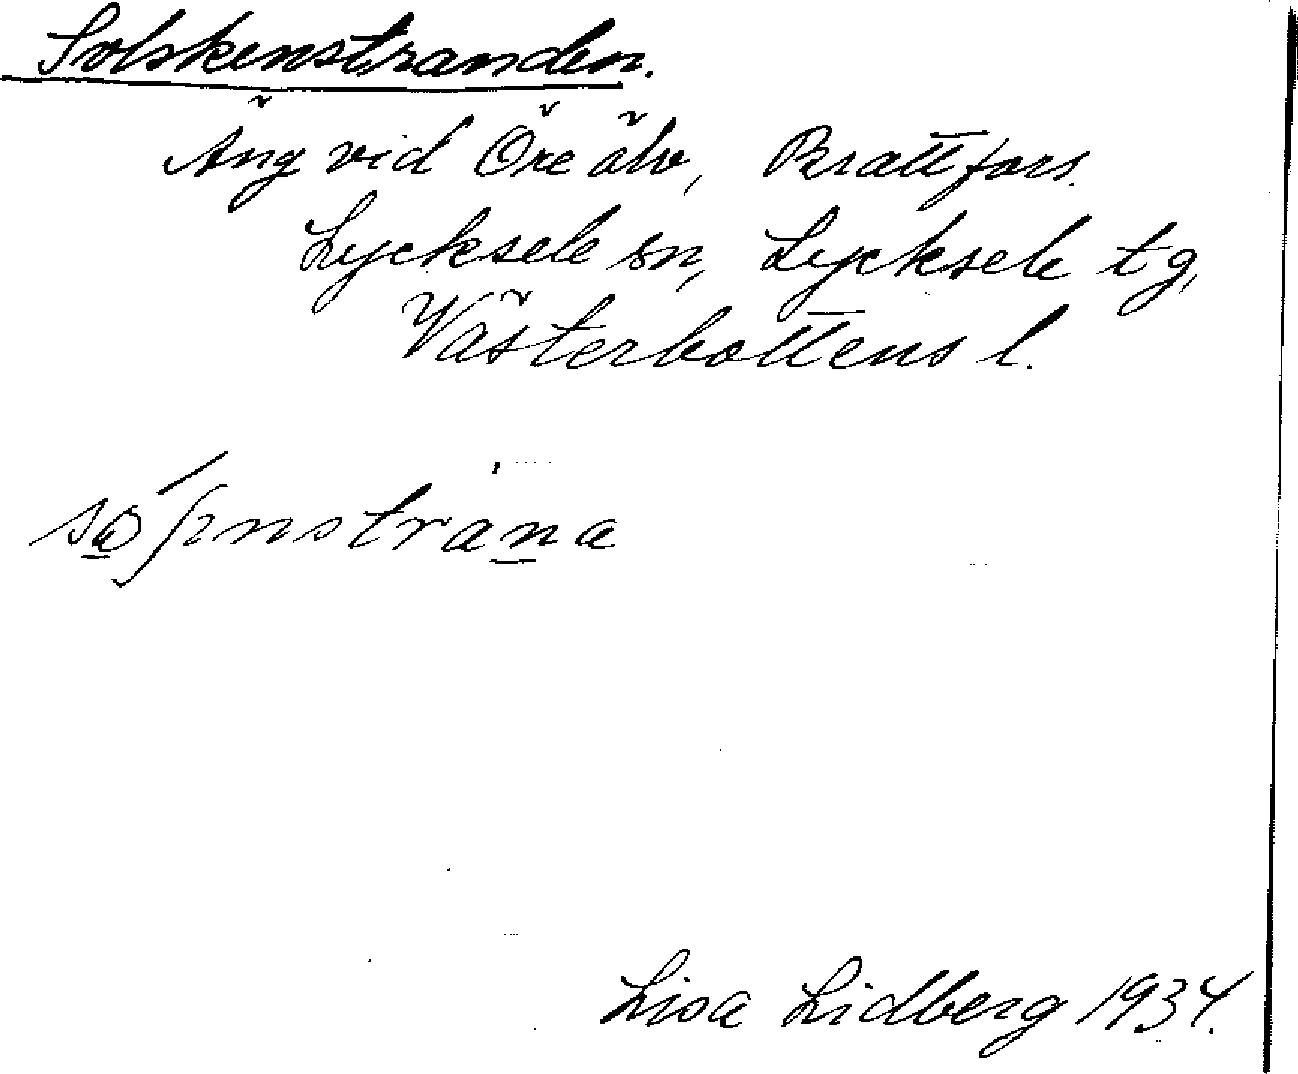 Solskenstranden.
Äng vid Öre älv, Brattfors.
Lycksele sn, Lycksele tg,
Västerbottens l.
Lisa Lidberg 1934.